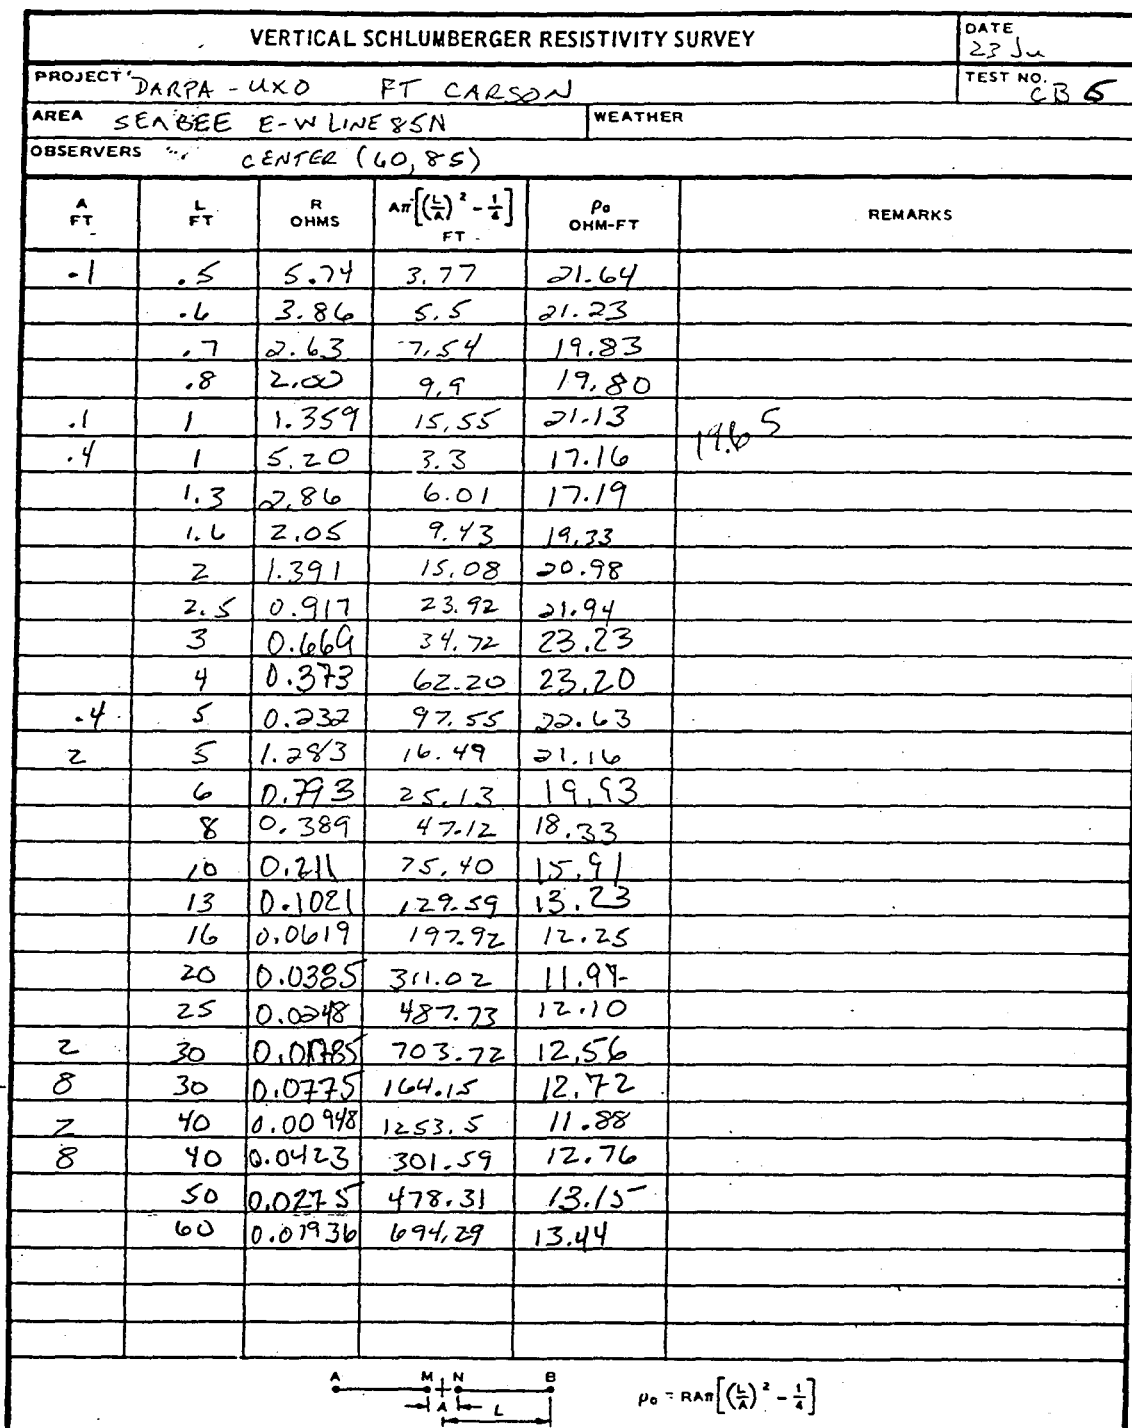 VERTICAL SCHLUMBERGER RESISTIVITY SURVEY
DATE
23 Ju
PROJECT DARPA - UXO FT CARSON
TEST NO.
CB 5
AREA SEABEE E-W LINE 85N
WEATHER
OBSERVERS CENTER (60, 85)
A FT L FT R OHMS Aπ[(L/A)² - 1/4] FT ρa OHM-FT REMARKS
.1 .5 5.74 3.77 21.64
.6 3.86 5.5 21.23
.7 2.63 7.54 19.83
.8 2.00 9.9 19.80
.1 1 1.359 15.55 21.13
19.65
.4 1 5.20 3.3 17.16
1.3 2.86 6.01 17.19
1.6 2.05 9.43 19.33
2 1.391 15.08 20.98
2.5 0.917 23.92 21.94
3 0.669 34.72 23.23
4 0.373 62.20 23.20
.4 5 0.232 97.55 22.63
2 5 1.283 16.49 21.16
6 0.793 25.13 19.93
8 0.389 47.12 18.33
10 0.211 75.40 15.91
13 0.1021 129.59 13.23
16 0.0619 197.92 12.25
20 0.0385 311.02 11.97
25 0.0248 487.73 12.10
2 30 0.01785 703.72 12.56
8 30 0.0775 164.15 12.72
2 40 0.00948 1253.5 11.88
8 40 0.0423 301.59 12.76
50 0.0275 478.31 13.15
60 0.01936 694.29 13.44
A M N B
A L
ρa = RAπ[(L/A)² - 1/4]